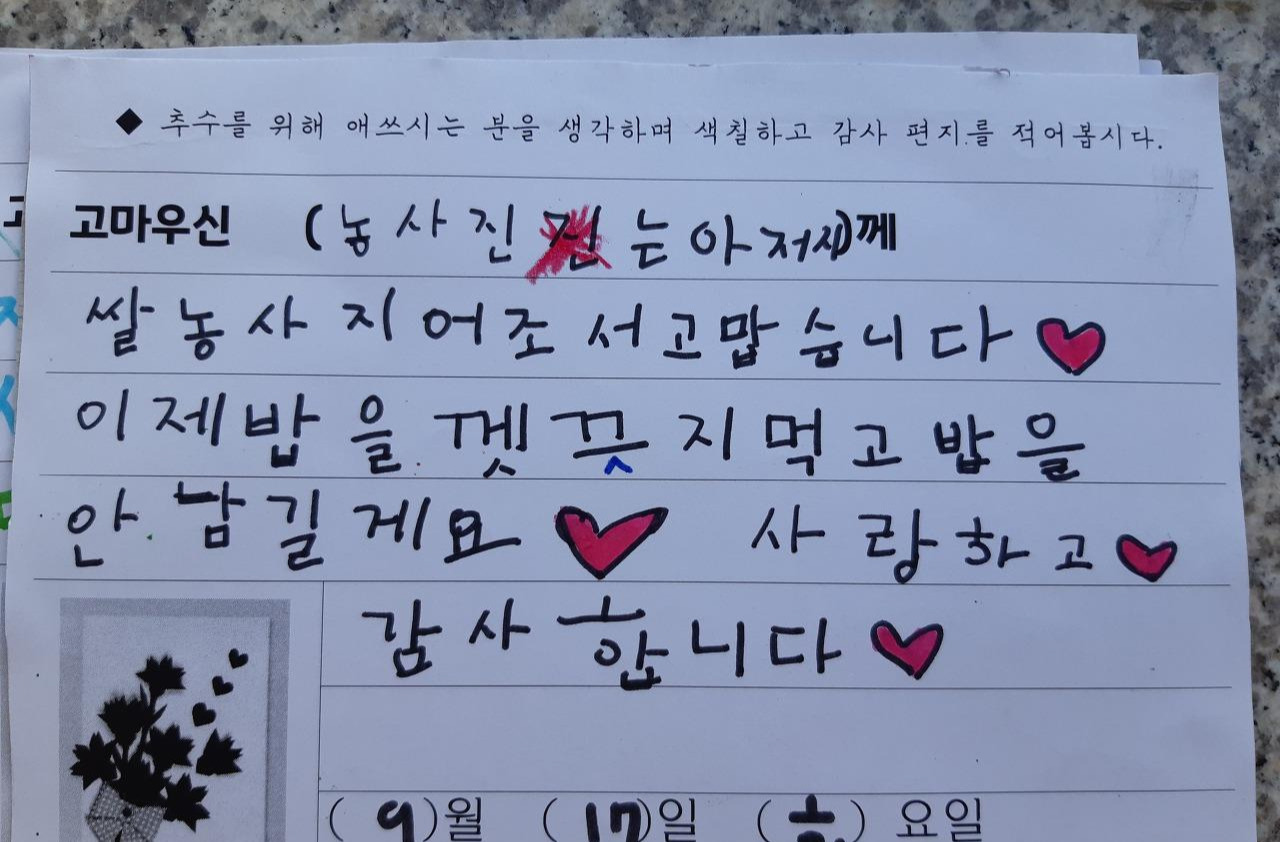 ◆ 추수를 위해 애쓰시는 분을 생각하며 색칠하고 감사 편지를 적어봅시다.
고마우신 (농사진는아저씨)께
쌀농사지어조서고맙습니다
이제밥을 껫끗지먹고밥을
안남길게요 사랑하고
감사합니다
(9)월 (17)일 ( ) 요일